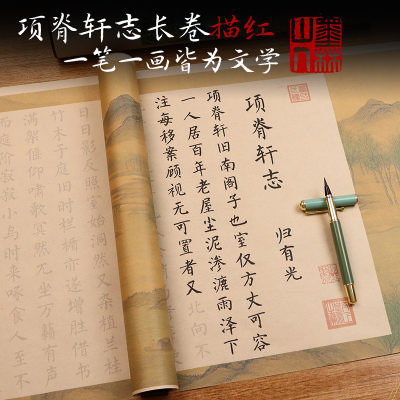 项脊轩志长卷描红
一笔一画皆为文学
项脊轩志
归有光
项脊轩旧南阁子也室仅方丈可容
一人居百年老屋尘泥渗漉雨泽下
注每移案顾视无可置者又北向不
日日影反照室始洞然又杂植兰桂
竹木于庭旧时栏楯亦遂增胜借书
满架偃仰啸歌冥然兀坐万籁有声
而庭阶寂寂小鸟时来啄食人至不